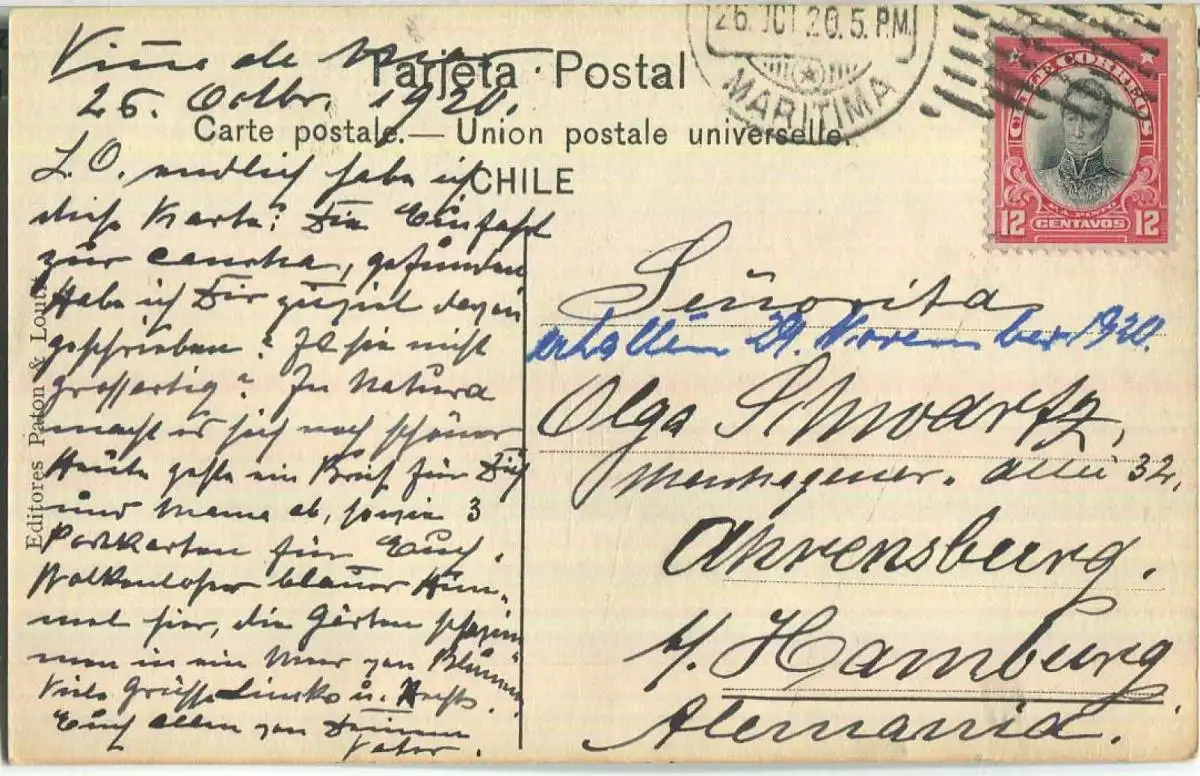 Viña de Mar
26. Octbr. 1920.
Tarjeta Postal
Carte postale.— Union postale universelle.
CHILE
26. OCT 20. 5. P.M.
MARITIMA
CHILE CORREOS
12 CENTAVOS 12
L. O. endlich habe ich
diese Karte: Die Einfahrt
zur cancha, gefunden
Habe ich Dir zuviel davon
geschrieben? Ist sie nicht
grossartig? In Natura
macht es sich noch schöner
Heute geht ein Brief für Dich
und Mama ab, sowie 3
Postkarten für Euch.
Wolkenloser blauer Him-
mel hier, die Gärten schwim
men in ein Meer von Blumen
Viele Grüsse u.
Euch allen von Deinem
Vater.
Editores Paton &
Señorita
erhalten 29. November 1920.
Olga Schwartz,
allee 32,
Ahrensburg.
b/ Hamburg
Alemania.